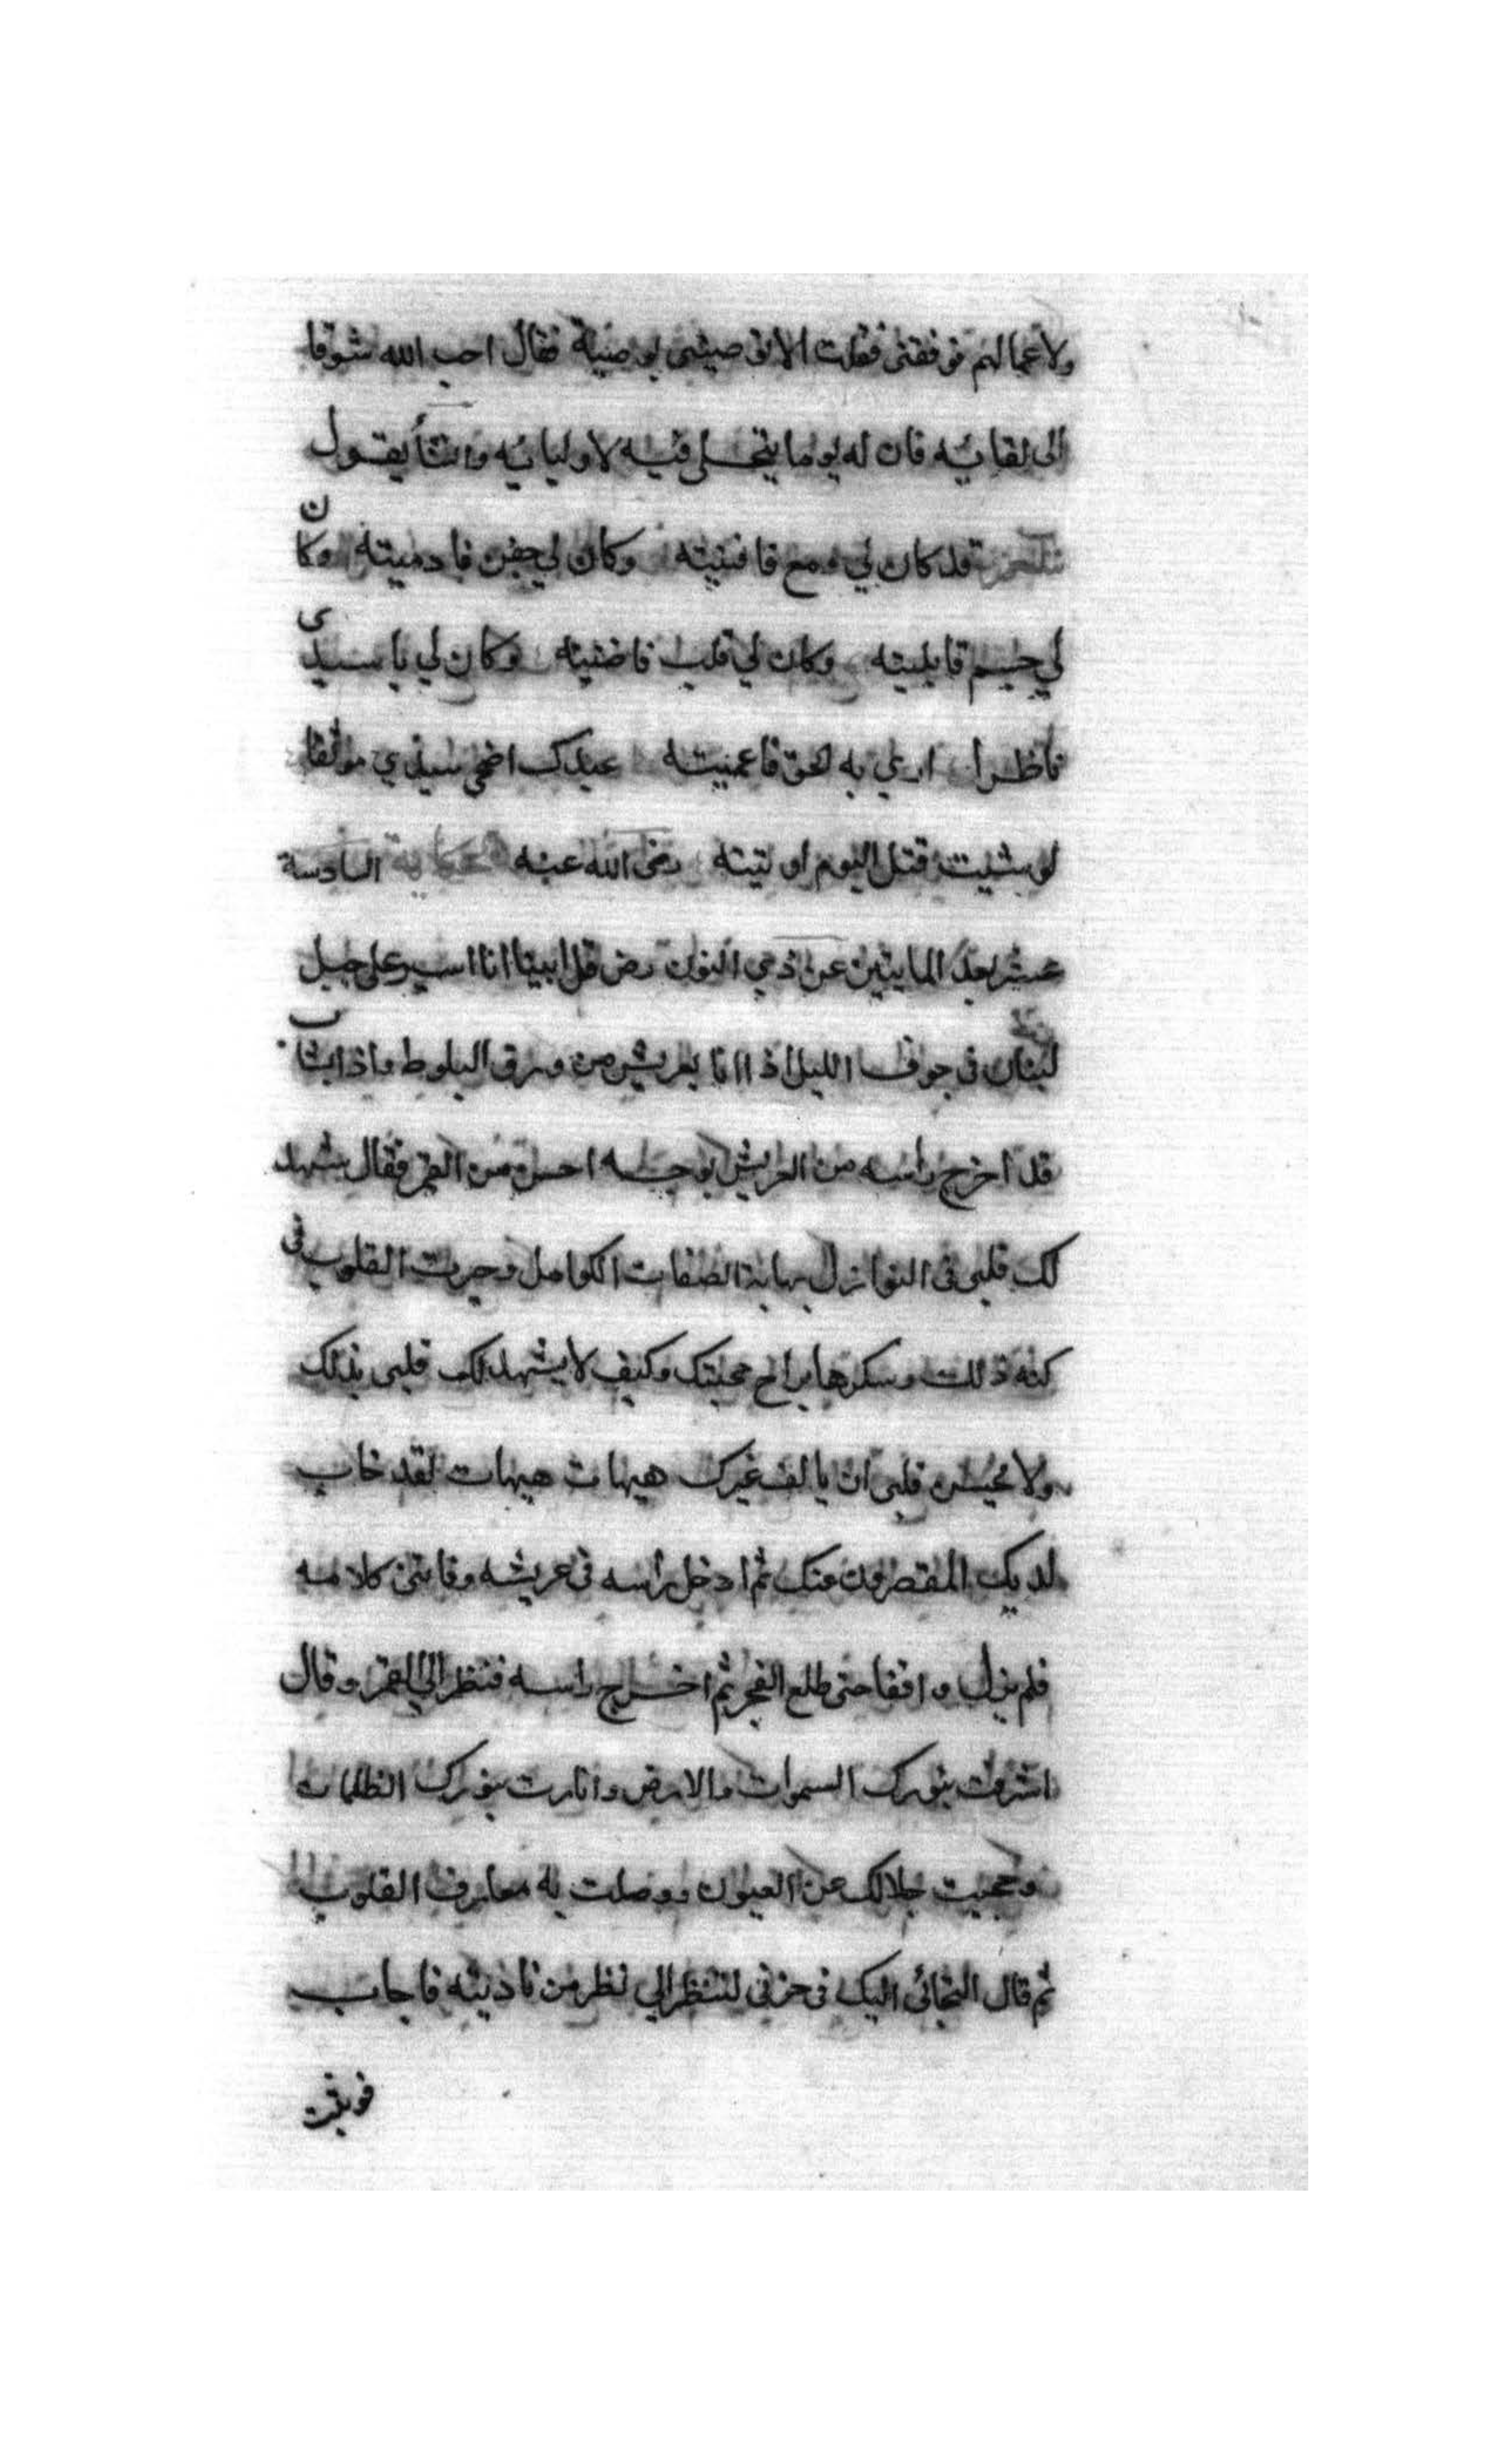 ولاعمالهم توفقني فقلت الا توصيني بوصية فقال احب الله شوقا
الى لقايه فان له يوما يتجلى فيه لاوليايه وانشأ يقول
شعر قد كان لي دمع فافنيته وكان لي جفن فادميته وكان
لي جسم فابليته وكان لي قلب فاضنيته وكان لي يا سيدي
ناظرا ارى به الحق فاعميته عبدك اضحى سيدي موثقا
لو شيت قتل اليوم اوتيته رضى الله عنه الحكاية السادسة
عشر بعد المايتين عن ذي النون رض قال بينا انا اسير على جبل
لبنان في جوف الليل اذا انا بعريش من ورق البلوط واذا بشاب
قد اخرج راسه من العريش بوجه احسن من القمر فقال شهد
لك قلبى في النوازل بهاية الصفات الكوامل وحيرت القلوب في
كنه ذلك وسكرها براح محبتك وكيف لا يشهد لك قلبى بذلك
ولا يحسن قلبى ان يالف غيرك هيهات هيهات لقد خاب
لديك المقصرون عنك ثم ادخل راسه في عريشه وفاتنى كلامه
فلم يزل واقفا حتى طلع الفجر ثم اخرج راسه فنظر الي القمر وقال
اشرقت بنورك السموات والارض وانارت بنورك الظلمات
وحجبت جلالك عن العيون ووصلت به معارف القلوب
ثم قال التجائى اليك في حزني لتنظر الي نظر من ناديته فاجاب